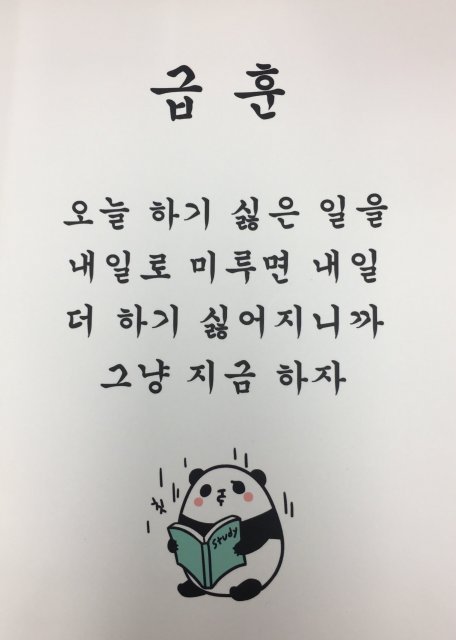 급 훈
오늘 하기 싫은 일을
내일로 미루면 내일
더 하기 싫어지니까
그냥 지금 하자
칫
study